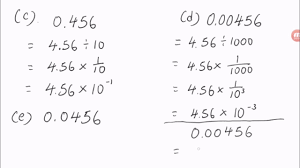 (c) 0.456
= 4.56 ÷ 10
= 4.56 × 1/10
= 4.56 × 10⁻¹
(e) 0.0456
(d) 0.00456
= 4.56 ÷ 1000
= 4.56 × 1/1000
= 4.56 × 1/10³
= 4.56 × 10⁻³
0.00456
=